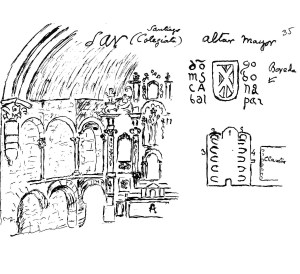 Santiago
Sar (Colegiata)
altar mayor
35
do
ms
CA
bal
go
bo
na
par
Boveda
3
4
Claustro
A